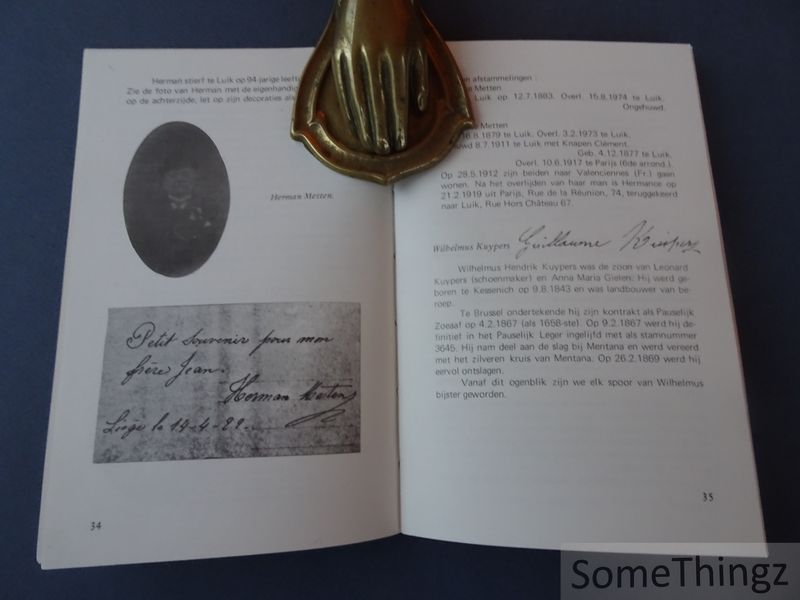 Herman stierf te Luik op 94-jarige
Zie de foto van Herman met de eigenhandig
op de achterzijde, let op zijn decoraties als
Herman Metten.
Petit souvenir pour mon
frère Jean.
Herman Metten
Liége le 14-4-22.
34
afstammelingen :
Metten
Luik op 12.7.1883. Overl. 15.8.1974 te Luik.
Ongehuwd.
Metten
.8.1879 te Luik. Overl. 3.2.1973 te Luik.
8.7.1911 te Luik met Knapen Clément.
Geb. 4.12.1877 te Luik.
Overl. 10.6.1917 te Parijs (6de arrond.).
Op 28.5.1912 zijn beiden naar Valenciennes (Fr.) gaan
wonen. Na het overlijden van haar man is Hermance op
21.2.1919 uit Parijs, Rue de la Réunion, 74, teruggekeerd
naar Luik, Rue Hors Château 67.
Wilhelmus Kuypers Guillaume Kuypers
Wilhelmus Hendrik Kuypers was de zoon van Leonard
Kuypers (schoenmaker) en Anna Maria Gielen. Hij werd ge-
boren te Kessenich op 9.8.1843 en was landbouwer van be-
roep.
Te Brussel ondertekende hij zijn kontrakt als Pauselijk
Zoeaaf op 4.2.1867 (als 1658-ste). Op 9.2.1867 werd hij de-
finitief in het Pauselijk Leger ingelijfd met als stamnummer
3645. Hij nam deel aan de slag bij Mentana en werd vereerd
met het zilveren kruis van Mentana. Op 26.2.1869 werd hij
eervol ontslagen.
Vanaf dit ogenblik zijn we elk spoor van Wilhelmus
bijster geworden.
35
SomeThingz